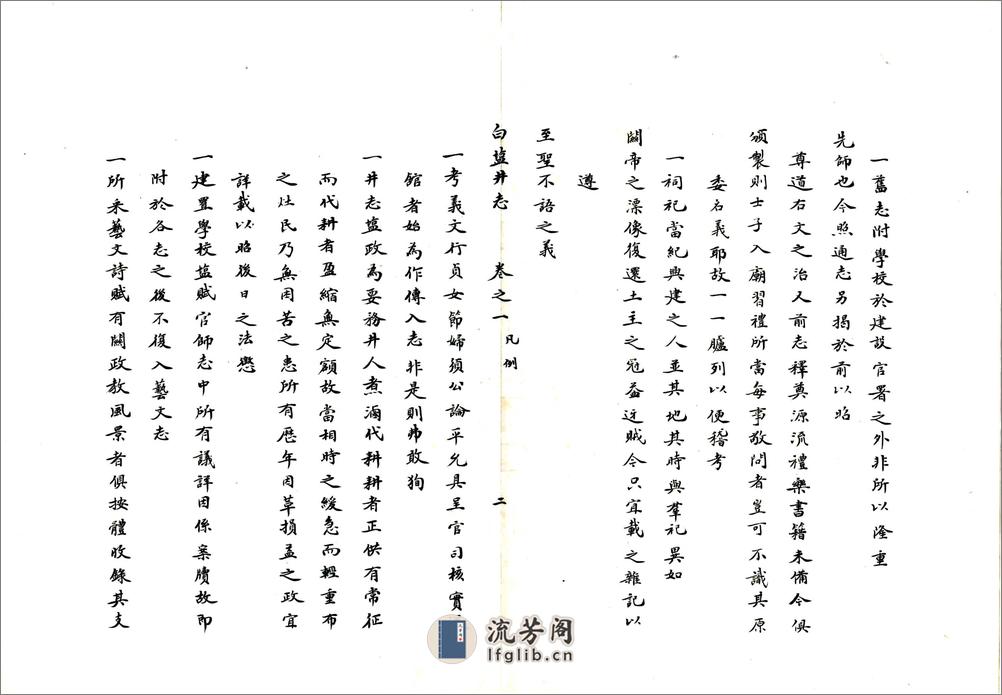 一舊志附學校於建設官署之外非所以隆重
先師也今照通志另揭於前以昭
尊道右文之治又前志釋奠源流禮樂書籍未備今俱
頒製則士子入廟習禮所當每事敬問者豈可不識其原
委名義耶故一一臚列以便稽考
一祠祀當紀興建之人並其地其時與羣祀異如
關帝之漂像復還土主之冠益近賊今只宜載之雜記以
遵
至聖不語之義
白鹽井志 卷之一 凡例 二
一考義文行貞女節婦須公論平允具呈官司核實
館者始為作傳入志非是則弗敢狥
一井志鹽政為要務井人煮滷代耕耕者正供有常征
而代耕者盈縮無定額故當相時之緩急而輕重布
之灶民乃無困苦之患所有歷年因革損益之政宜
詳載以昭後日之法懲
一建置學校鹽賦官師志中所有議詳因係案牘故即
附於各志之後不復入藝文志
一所采藝文詩賦有關政教風景者俱按體收錄其支
流芳阁
lfglib.cn